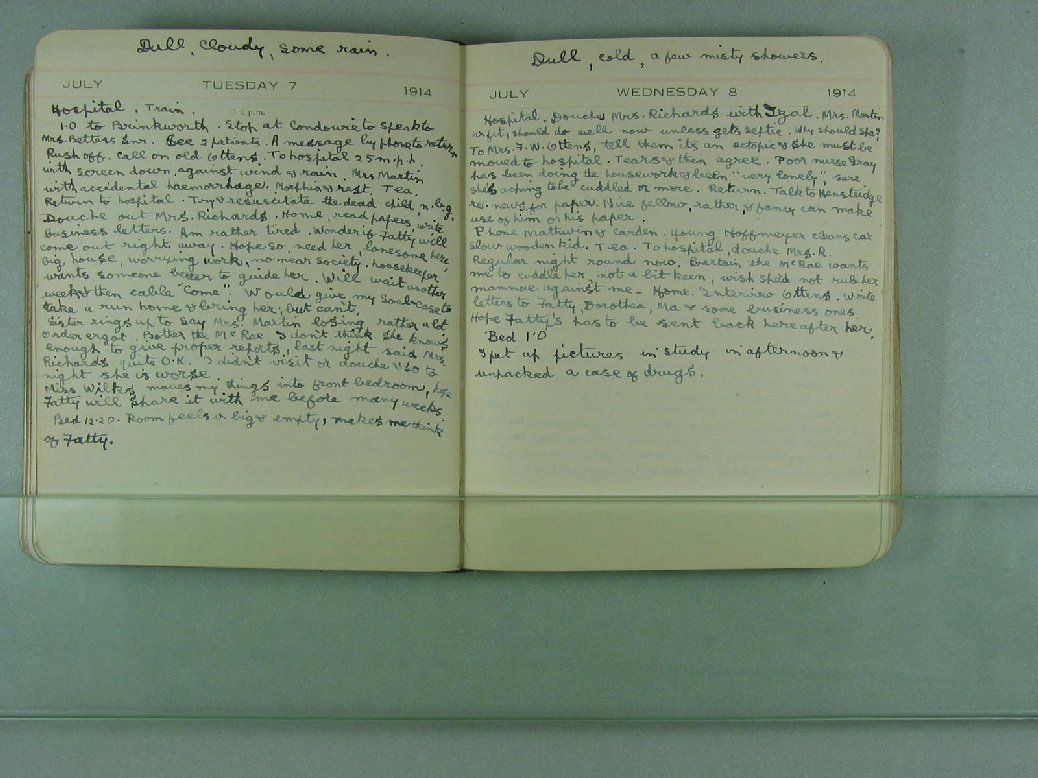 Dull, cloudy, some rain.
JULY TUESDAY 7 1914
Hospital. Train.
1.0 to Brinkworth. Stop at Condowie to speak to
Mrs. Bettess Snr. See 2 patients. A message by phone to return
Rush off. Call on old Ottens. To hospital 25 m.p.h.
with screen down, against wind & rain. Mrs Martin
with accidental haemorrhage. Morphia & rest. Tea.
Return to hospital. Try & resuscitate the dead child, n.b.g.
Douche out Mrs. Richards. Home, read papers, write
business letters. Am rather tired. Wonder if Fatty will
come out right away. Hope so, need her, lonesome here,
big house, worrying work, no near society, housekeeper
wants someone better to guide her. Will wait another
week & then cable "Come". Would give my soul case to
take a run home & bring her, but can't.
Sister rings up to say Mrs. Martin losing rather a lot
order ergot. Bother the McRae I don't think she knows
enough to give proper reports, last night said Mrs
Richards quite O.K. I didn't visit or douche & so to
night she is worse.
Miss Wilkes moves my things into front bedroom, hope
Fatty will share it with me before many weeks.
Bed 12.20. Room feels v. big & empty, makes me think
of Fatty.
Dull, cold, a few misty showers.
JULY WEDNESDAY 8 1914
Hospital. Douche Mrs. Richards with Izal. Mrs. Martin
v. fit, should do well now unless gets septic. Why should she?
To Mrs. F. W. Ottens, tell them its an ectopic & she must be
moved to hospital. Tears & then agree. Poor nurse Gray
has been doing the housework & been "very lonely", sure
she's aching to be cuddled or more. Return. Talk to Henstridge
re. news for paper. Nice fellow, rather, & fancy can make
use of him or his paper.
Phone Mathwin & Carden. Young Hoffmeyer cleans car
slow wooden kid. Tea. To hospital, douche Mrs. R.
Regular night round now. Certain the McRae wants
me to cuddle her, not a bit keen, wish she'd not rub her
mammae against me. Home. Interview Ottens, write
letters to Fatty, Dorothea, Ma & some business ones
Hope Fatty's has to be sent back here after her.
Bed 1.0
I put up pictures in study in afternoon &
unpacked a case of drugs.